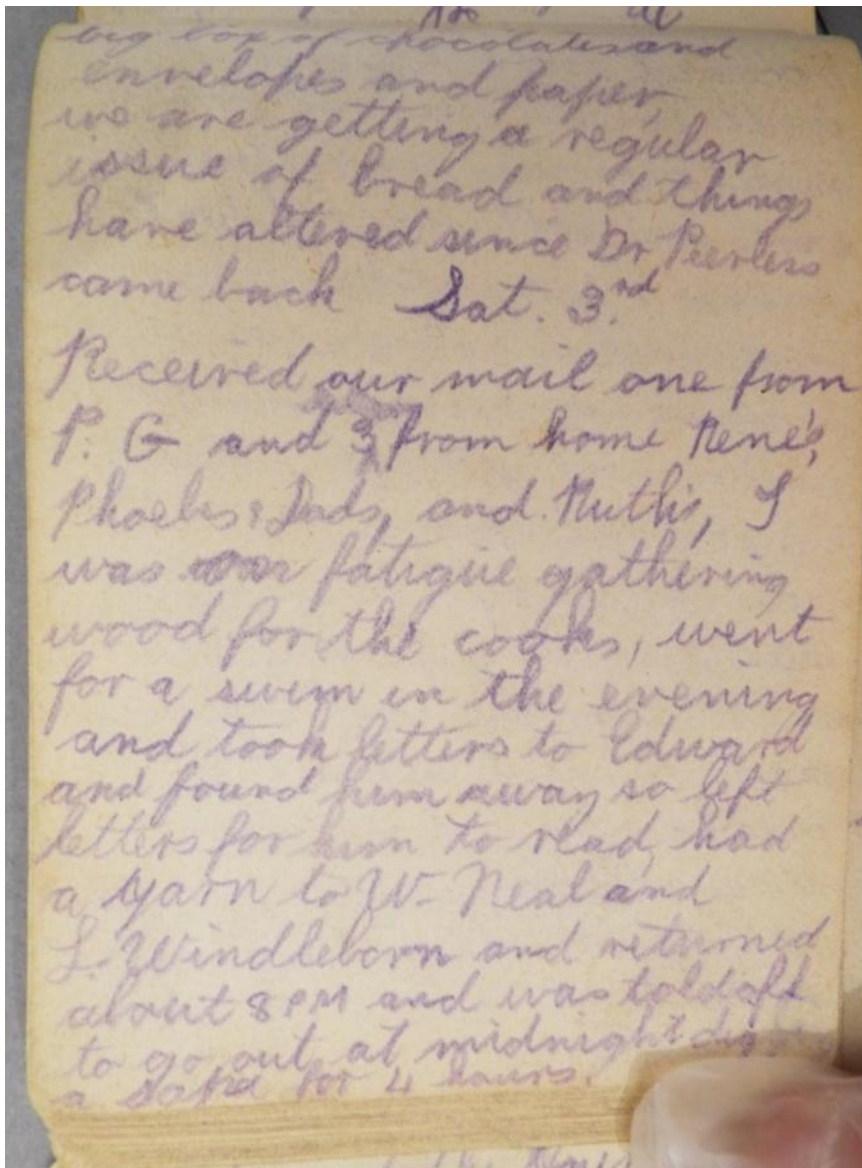 big box of chocolates and
envelopes and paper,
we are getting a regular
issue of bread and things
have altered since Dr Peerless
came back Sat. 3rd.
Received our mail one from
P. G and 3 from home Rene's,
Phoebes & Dads, and Ruth's, I
was on fatigue gathering
wood for the cooks, went
for a swim in the evening
and took letters to Edward
and found him away so left
letters for him to read, had
a yarn to W. Neal and
L. Windleborn and returned
about 8 PM and was told off
to go out at midnight
a sap for 4 hours.